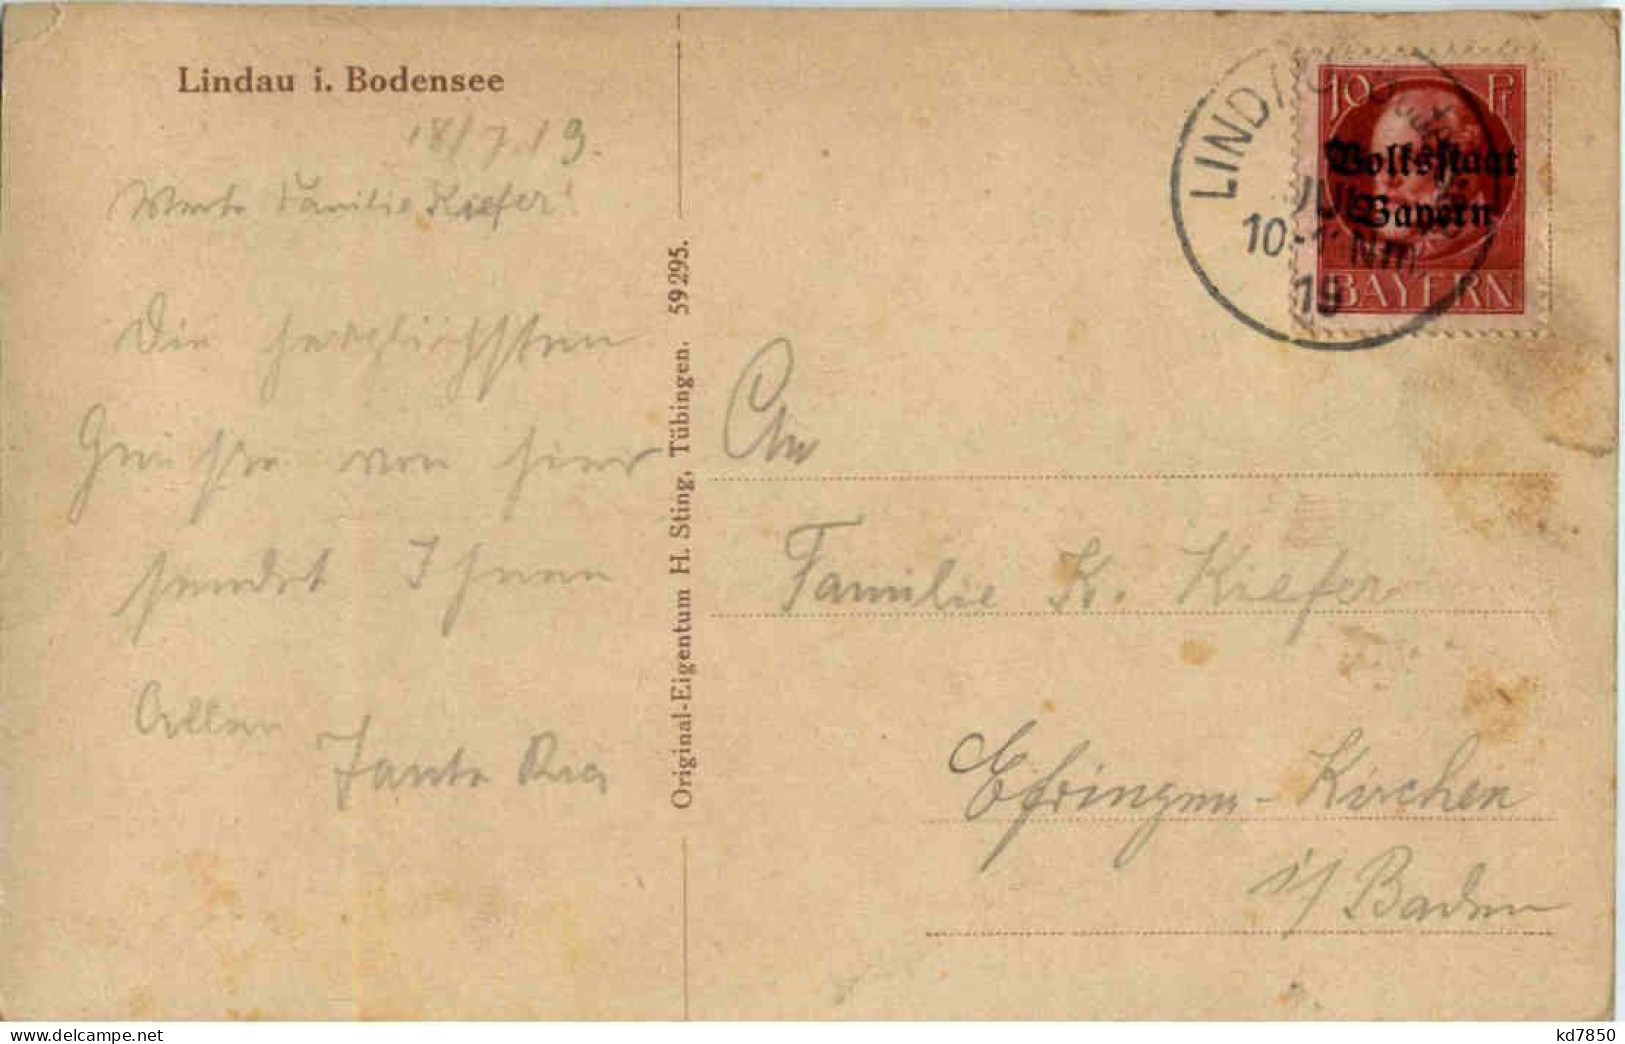 Lindau i. Bodensee
18/7.19.
Werte Familie Kiefer!
Die herzlichsten
Grüsse von hier
sendet Ihnen
Allen
Tante
Original-Eigentum H. Sting, Tübingen. 59295.
LINDAU
JUL
10-11 Nm.
19
10 Pf
Volksstaat
Bayern
BAYERN
An
Familie K. Kiefer
Efringen-Kirchen
i/ Baden
kd7850